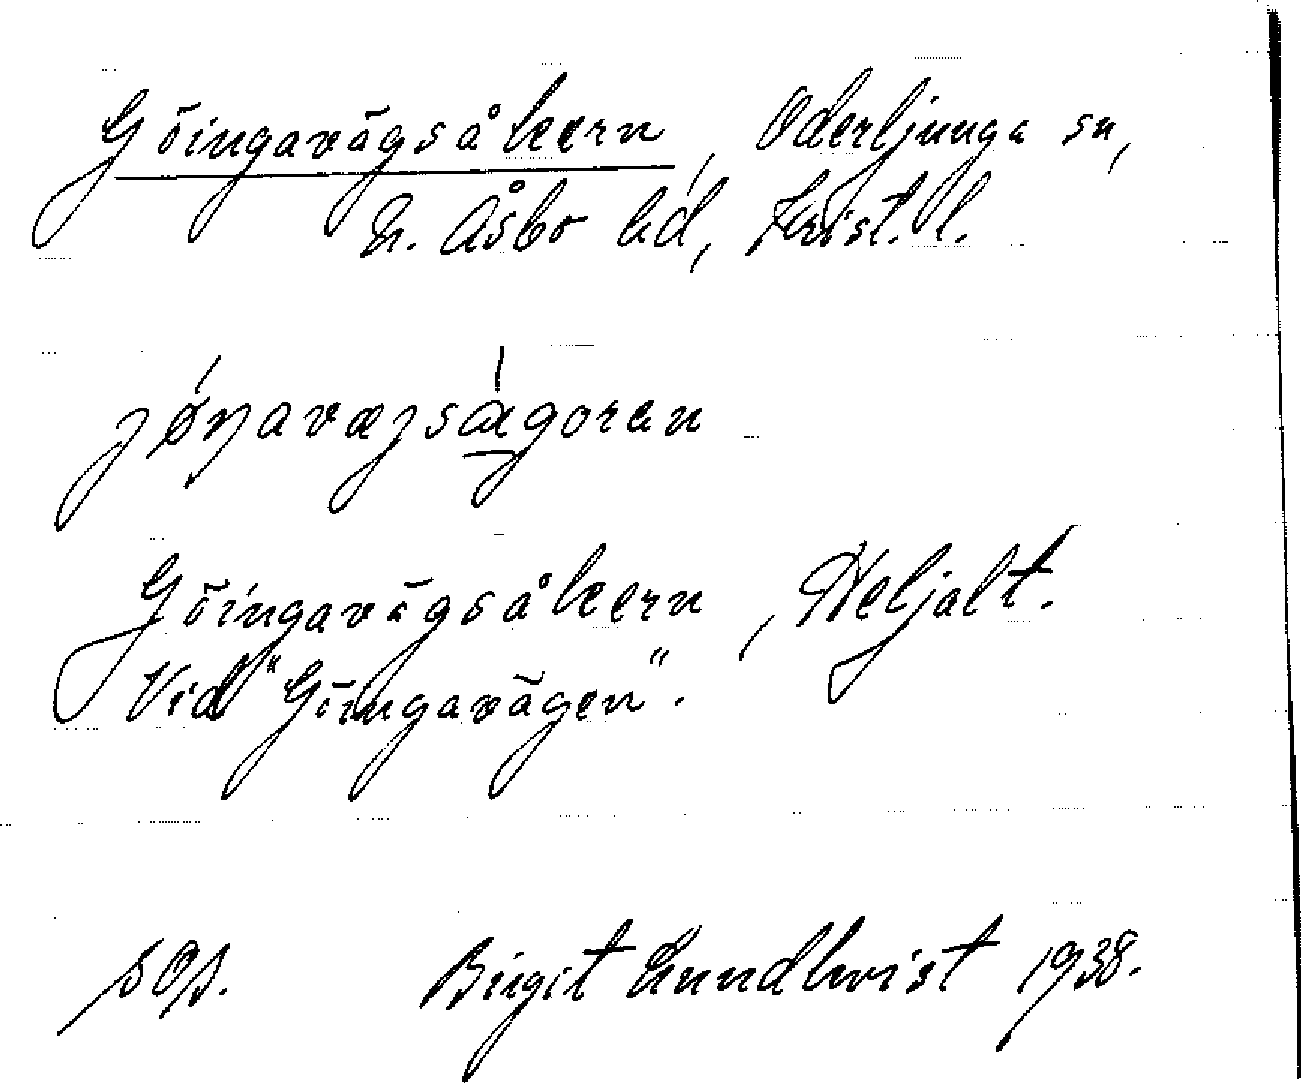 Göingavägsåkern, Oderljunga sn,
N. Åsbo hd, Krist. l.
jøŋavæjsågoren
Göingavägsåkern, Heljalt.
Vid "Göingavägen".
sOs. Birgit Lundkvist 1938.